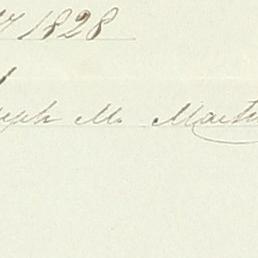 7 1828
eph M. Mart